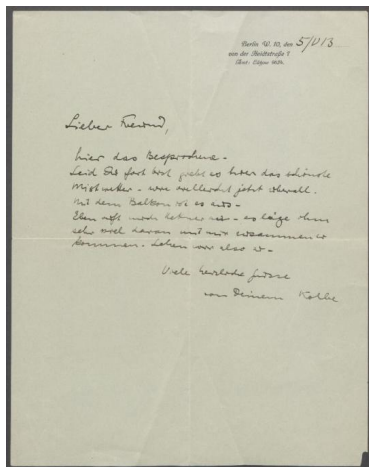 Berlin W. 10, den 5/V 13
von der Heydtstraße 7
Lieber Freund,
hier das Besprochene -
Seid Ihr fort geht es hier das schönste
Mistwetter - wie vielleicht jetzt überall.
Mit dem Balkon ist es aus -
Eben ruft mich - es läge ihm
sehr viel daran mit mir zusammen zu
kommen - sehen wir also zu -
Viele herzliche Grüsse
von Deinem Kolbe